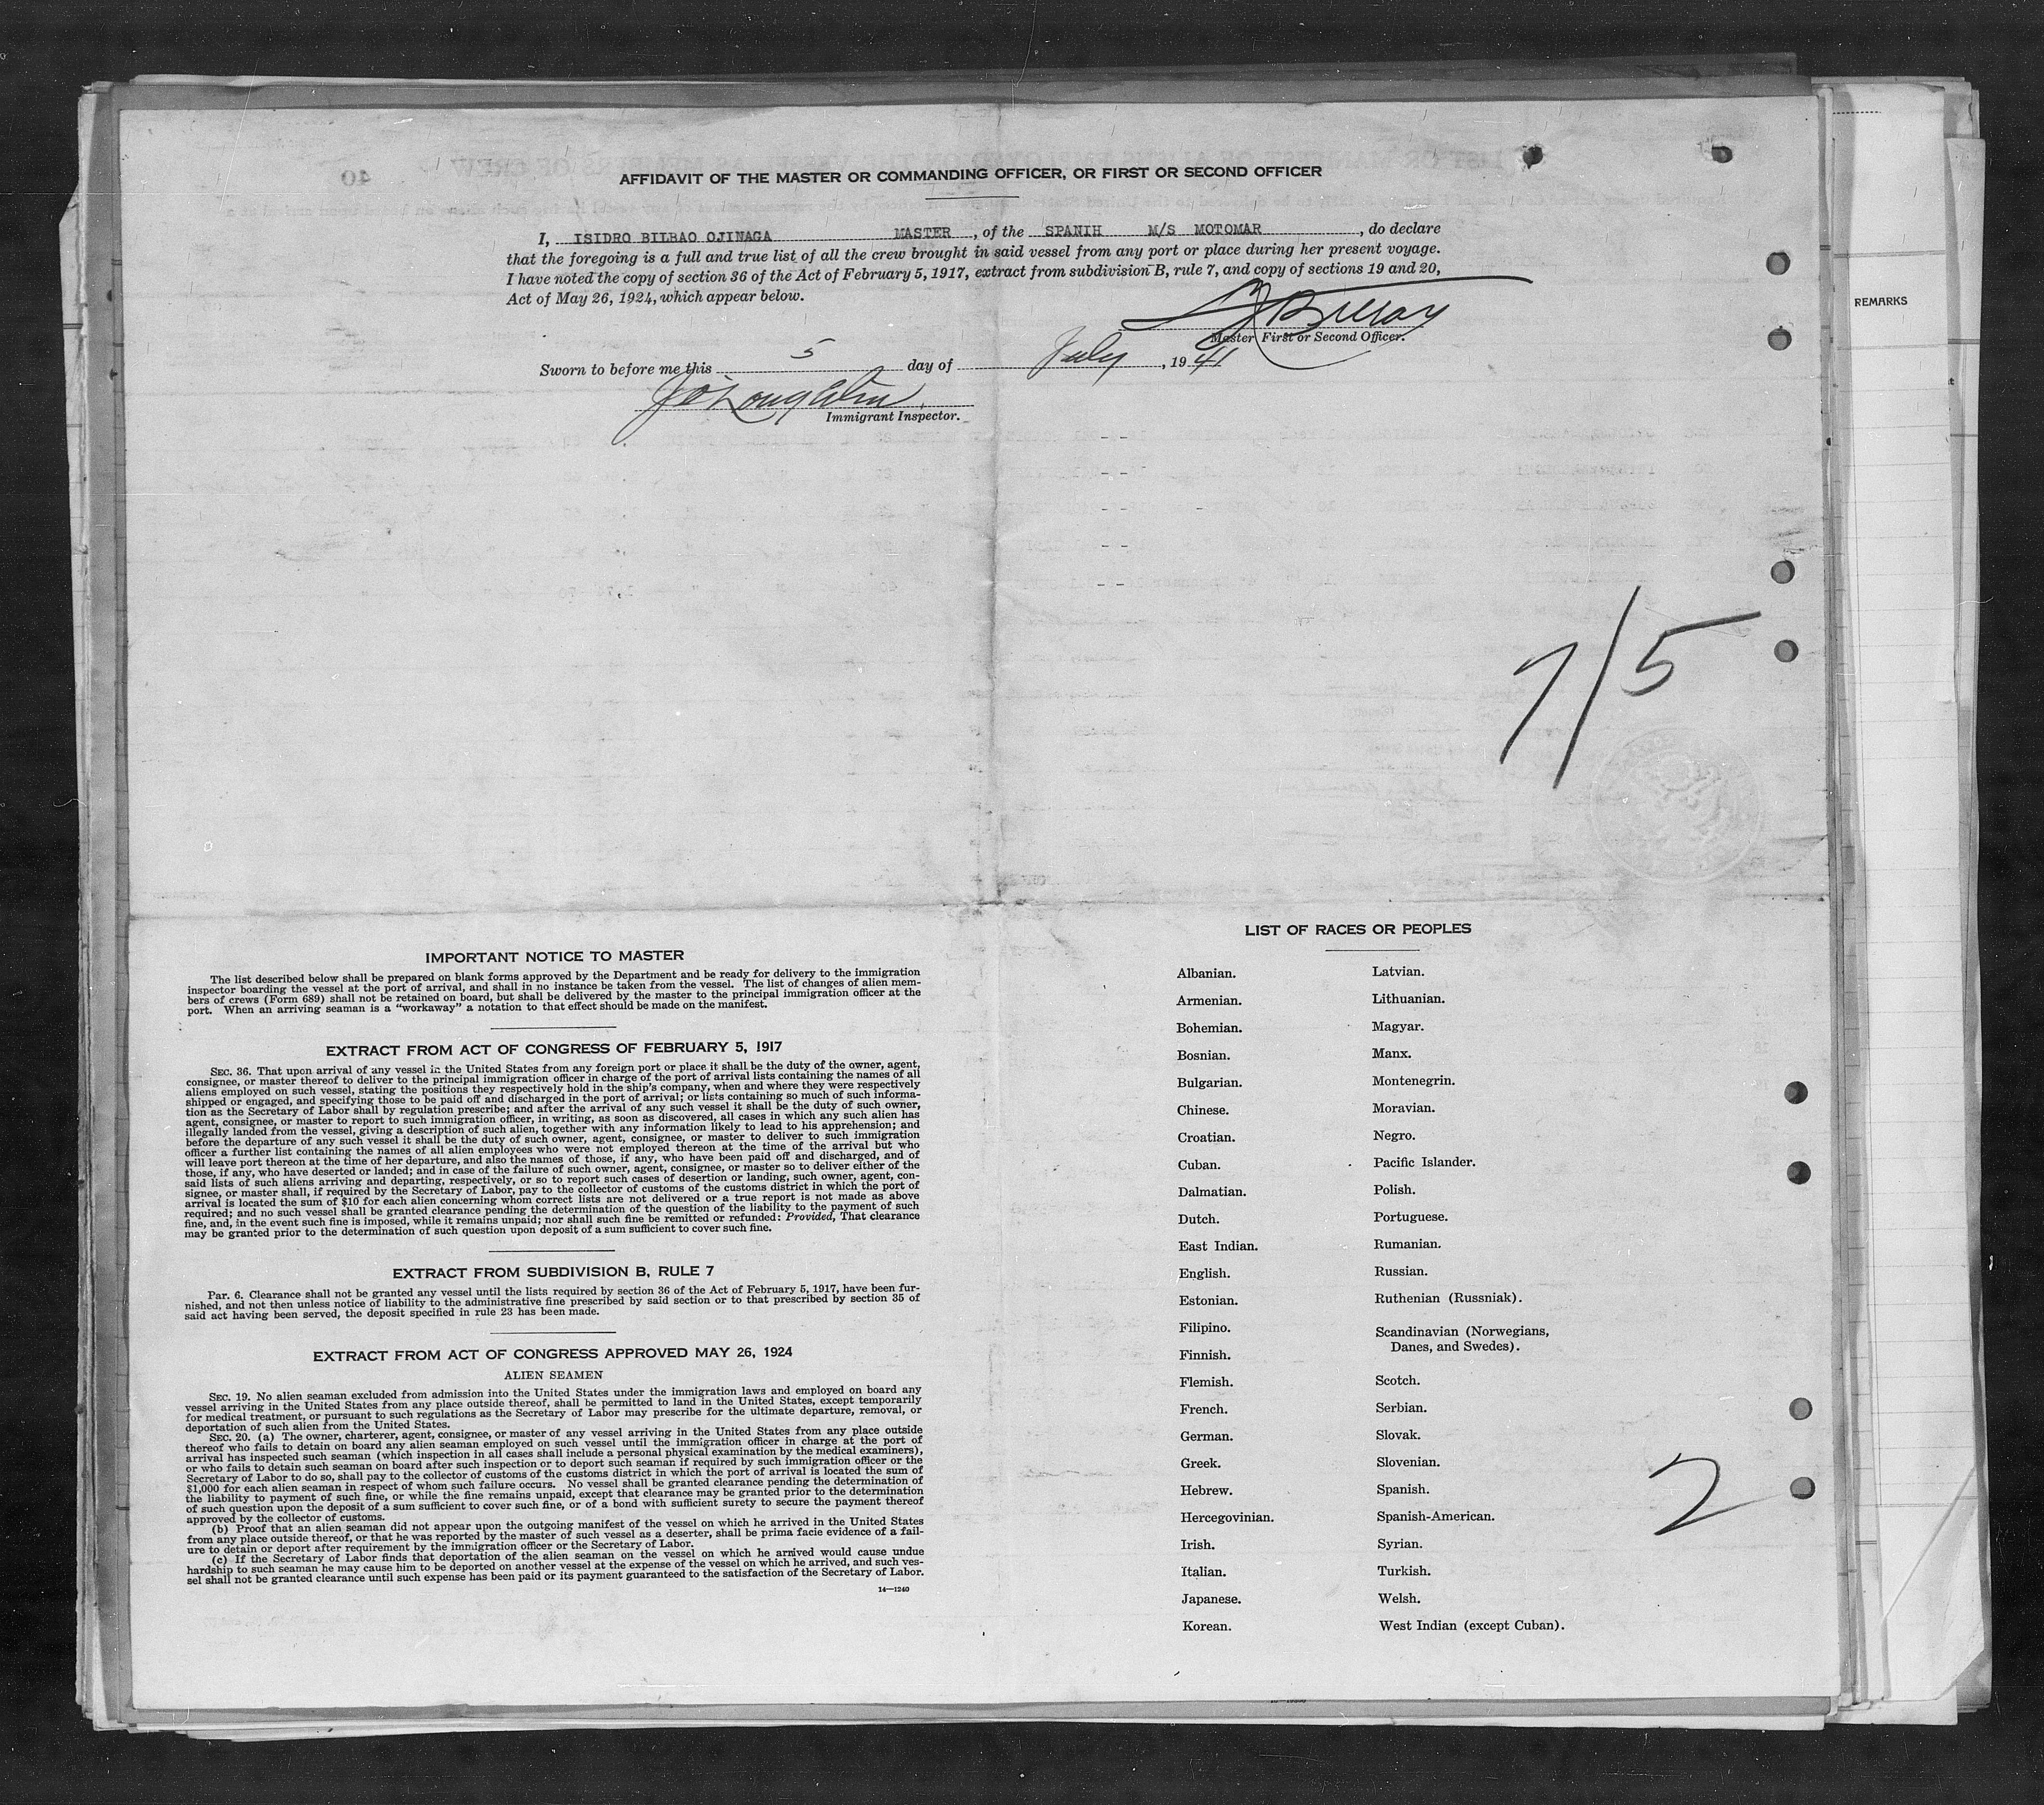 AFFIDAVIT OF THE MASTER OR COMMANDING OFFICER, OR FIRST OR SECOND OFFICER
I, ISIDRO BILBAO OJINAGA MASTER, of the SPANIH M/S MOTOMAR, do declare
that the foregoing is a full and true list of all the crew brought in said vessel from any port or place during her present voyage.
I have noted the copy of section 36 of the Act of February 5, 1917, extract from subdivision B, rule 7, and copy of sections 19 and 20,
Act of May 26, 1924, which appear below.
Master First or Second Officer.
Sworn to before me this 5 day of July, 1941
Immigrant Inspector.
REMARKS
7/5
IMPORTANT NOTICE TO MASTER
The list described below shall be prepared on blank forms approved by the Department and be ready for delivery to the immigration
inspector boarding the vessel at the port of arrival, and shall in no instance be taken from the vessel. The list of changes of alien mem-
bers of crews (Form 689) shall not be retained on board, but shall be delivered by the master to the principal immigration officer at the
port. When an arriving seaman is a "workaway" a notation to that effect should be made on the manifest.
EXTRACT FROM ACT OF CONGRESS OF FEBRUARY 5, 1917
SEC. 36. That upon arrival of any vessel in the United States from any foreign port or place it shall be the duty of the owner, agent,
consignee, or master thereof to deliver to the principal immigration officer in charge of the port of arrival lists containing the names of all
aliens employed on such vessel, stating the positions they respectively hold in the ship's company, when and where they were respectively
shipped or engaged, and specifying those to be paid off and discharged in the port of arrival; or lists containing so much of such informa-
tion as the Secretary of Labor shall by regulation prescribe; and after the arrival of any such vessel it shall be the duty of such owner,
agent, consignee, or master to report to such immigration officer, in writing, as soon as discovered, all cases in which any such alien has
illegally landed from the vessel, giving a description of such alien, together with any information likely to lead to his apprehension; and
before the departure of any such vessel it shall be the duty of such owner, agent, consignee, or master to deliver to such immigration
officer a further list containing the names of all alien employees who were not employed thereon at the time of the arrival but who
will leave port thereon at the time of her departure, and also the names of those, if any, who have been paid off and discharged, and of
those, if any, who have deserted or landed; and in case of the failure of such owner, agent, consignee, or master so to deliver either of the
said lists of such aliens arriving and departing, respectively, or so to report such cases of desertion or landing, such owner, agent, con-
signee, or master shall, if required by the Secretary of Labor, pay to the collector of customs of the customs district in which the port of
arrival is located the sum of $10 for each alien concerning whom correct lists are not delivered or a true report is not made as above
required; and no such vessel shall be granted clearance pending the determination of the question of the liability to the payment of such
fine, and, in the event such fine is imposed, while it remains unpaid; nor shall such fine be remitted or refunded: Provided, That clearance
may be granted prior to the determination of such question upon deposit of a sum sufficient to cover such fine.
EXTRACT FROM SUBDIVISION B, RULE 7
Par. 6. Clearance shall not be granted any vessel until the lists required by section 36 of the Act of February 5, 1917, have been fur-
nished, and not then unless notice of liability to the administrative fine prescribed by said section or to that prescribed by section 35 of
said act having been served, the deposit specified in rule 23 has been made.
EXTRACT FROM ACT OF CONGRESS APPROVED MAY 26, 1924
ALIEN SEAMEN
SEC. 19. No alien seaman excluded from admission into the United States under the immigration laws and employed on board any
vessel arriving in the United States from any place outside thereof, shall be permitted to land in the United States, except temporarily
for medical treatment, or pursuant to such regulations as the Secretary of Labor may prescribe for the ultimate departure, removal, or
deportation of such alien from the United States.
SEC. 20. (a) The owner, charterer, agent, consignee, or master of any vessel arriving in the United States from any place outside
thereof who fails to detain on board any alien seaman employed on such vessel until the immigration officer in charge at the port of
arrival has inspected such seaman (which inspection in all cases shall include a personal physical examination by the medical examiners),
or who fails to detain such seaman on board after such inspection or to deport such seaman if required by such immigration officer or the
Secretary of Labor to do so, shall pay to the collector of customs of the customs district in which the port of arrival is located the sum of
$1,000 for each alien seaman in respect of whom such failure occurs. No vessel shall be granted clearance pending the determination of
the liability to payment of such fine, or while the fine remains unpaid, except that clearance may be granted prior to the determination
of such question upon the deposit of a sum sufficient to cover such fine, or of a bond with sufficient surety to secure the payment thereof
approved by the collector of customs.
(b) Proof that an alien seaman did not appear upon the outgoing manifest of the vessel on which he arrived in the United States
from any place outside thereof, or that he was reported by the master of such vessel as a deserter, shall be prima facie evidence of a fail-
ure to detain or deport after requirement by the immigration officer or the Secretary of Labor.
(c) If the Secretary of Labor finds that deportation of the alien seaman on the vessel on which he arrived would cause undue
hardship to such seaman he may cause him to be deported on another vessel at the expense of the vessel on which he arrived, and such ves-
sel shall not be granted clearance until such expense has been paid or its payment guaranteed to the satisfaction of the Secretary of Labor.
14—1240
LIST OF RACES OR PEOPLES
Albanian.
Armenian.
Bohemian.
Bosnian.
Bulgarian.
Chinese.
Croatian.
Cuban.
Dalmatian.
Dutch.
East Indian.
English.
Estonian.
Filipino.
Finnish.
Flemish.
French.
German.
Greek.
Hebrew.
Hercegovinian.
Irish.
Italian.
Japanese.
Korean.
Latvian.
Lithuanian.
Magyar.
Manx.
Montenegrin.
Moravian.
Negro.
Pacific Islander.
Polish.
Portuguese.
Rumanian.
Russian.
Ruthenian (Russniak).
Scandinavian (Norwegians,
Danes, and Swedes).
Scotch.
Serbian.
Slovak.
Slovenian.
Spanish.
Spanish-American.
Syrian.
Turkish.
Welsh.
West Indian (except Cuban).
2